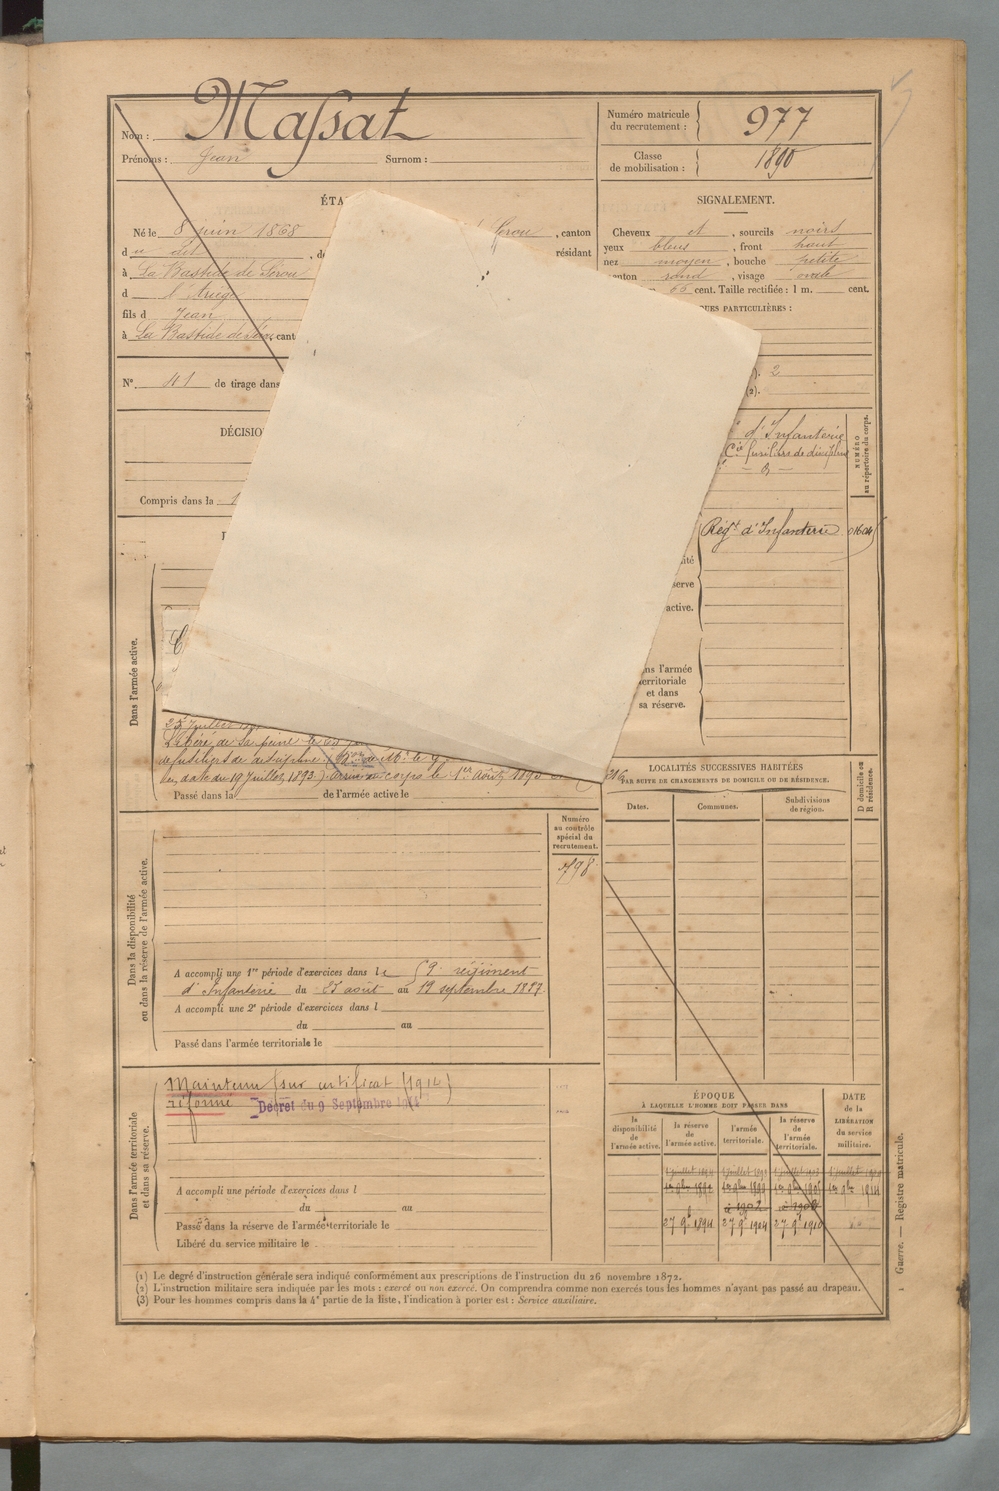 Nom : Massat
Prénoms : Jean Surnom :
Numéro matricule
du recrutement : 977
Classe
de mobilisation : 1890
ÉTA
Né le 8 juin 1868 Sérou , canton
du dit , de résidant
à La Bastide de Sérou
d l'Ariège
fils d Jean
à La Bastide de Sérou, cant
N° 41 de tirage dans
DÉCISIO
Compris dans la 1
SIGNALEMENT.
Cheveux et , sourcils noirs
yeux bleus , front haut
nez moyen , bouche petite
enton rond , visage ovale
66 cent. Taille rectifiée : 1 m. cent.
UES PARTICULIÈRES :
). 2
(2).
d'Infanterie
Cie fusiliers de discipline
NUMÉRO
au répertoire du corps.
Régt d'Infanterie 01604
ité
serve
active.
ns l'armée
erritoriale
et dans
sa réserve.
Dans l'armée active.
Libéré de sa peine le
de fusiliers de discipline
en date du 19 juillet 1893. Arrivé au corps le 1er Août 1893
Passé dans la de l'armée active le
Dans la disponibilité
ou dans la réserve de l'armée active.
Numéro
au contrôle
spécial du
recrutement.
798
A accompli une 1re période d'exercices dans le 59e régiment
d'Infanterie du 23 août au 19 septembre 1897
A accompli une 2e période d'exercices dans l
du au
Passé dans l'armée territoriale le
Dans l'armée territoriale
et dans sa réserve.
Maintenu (sur certificat (1914)
réformé Décret du 9 Septembre 1914
A accompli une période d'exercices dans l
du au
Passé dans la réserve de l'armée territoriale le
Libéré du service militaire le
LOCALITÉS SUCCESSIVES HABITÉES
PAR SUITE DE CHANGEMENTS DE DOMICILE OU DE RÉSIDENCE.
Dates. Communes. Subdivisions
de région.
D domicile ou
R résidence.
ÉPOQUE
À LAQUELLE L'HOMME DOIT PASSER DANS
DATE
de la
LIBÉRATION
du service
militaire.
la
disponibilité
de
l'armée active.
la réserve
de
l'armée active.
l'armée
territoriale.
la réserve
de
l'armée
territoriale.
27 9b 1894 27 9b 1904 27 9b 1910
(1) Le degré d'instruction générale sera indiqué conformément aux prescriptions de l'instruction du 26 novembre 1872.
(2) L'instruction militaire sera indiquée par les mots : exercé ou non exercé. On comprendra comme non exercés tous les hommes n'ayant pas passé au drapeau.
(3) Pour les hommes compris dans la 4e partie de la liste, l'indication à porter est : Service auxiliaire.
Guerre. — Registre matricule.